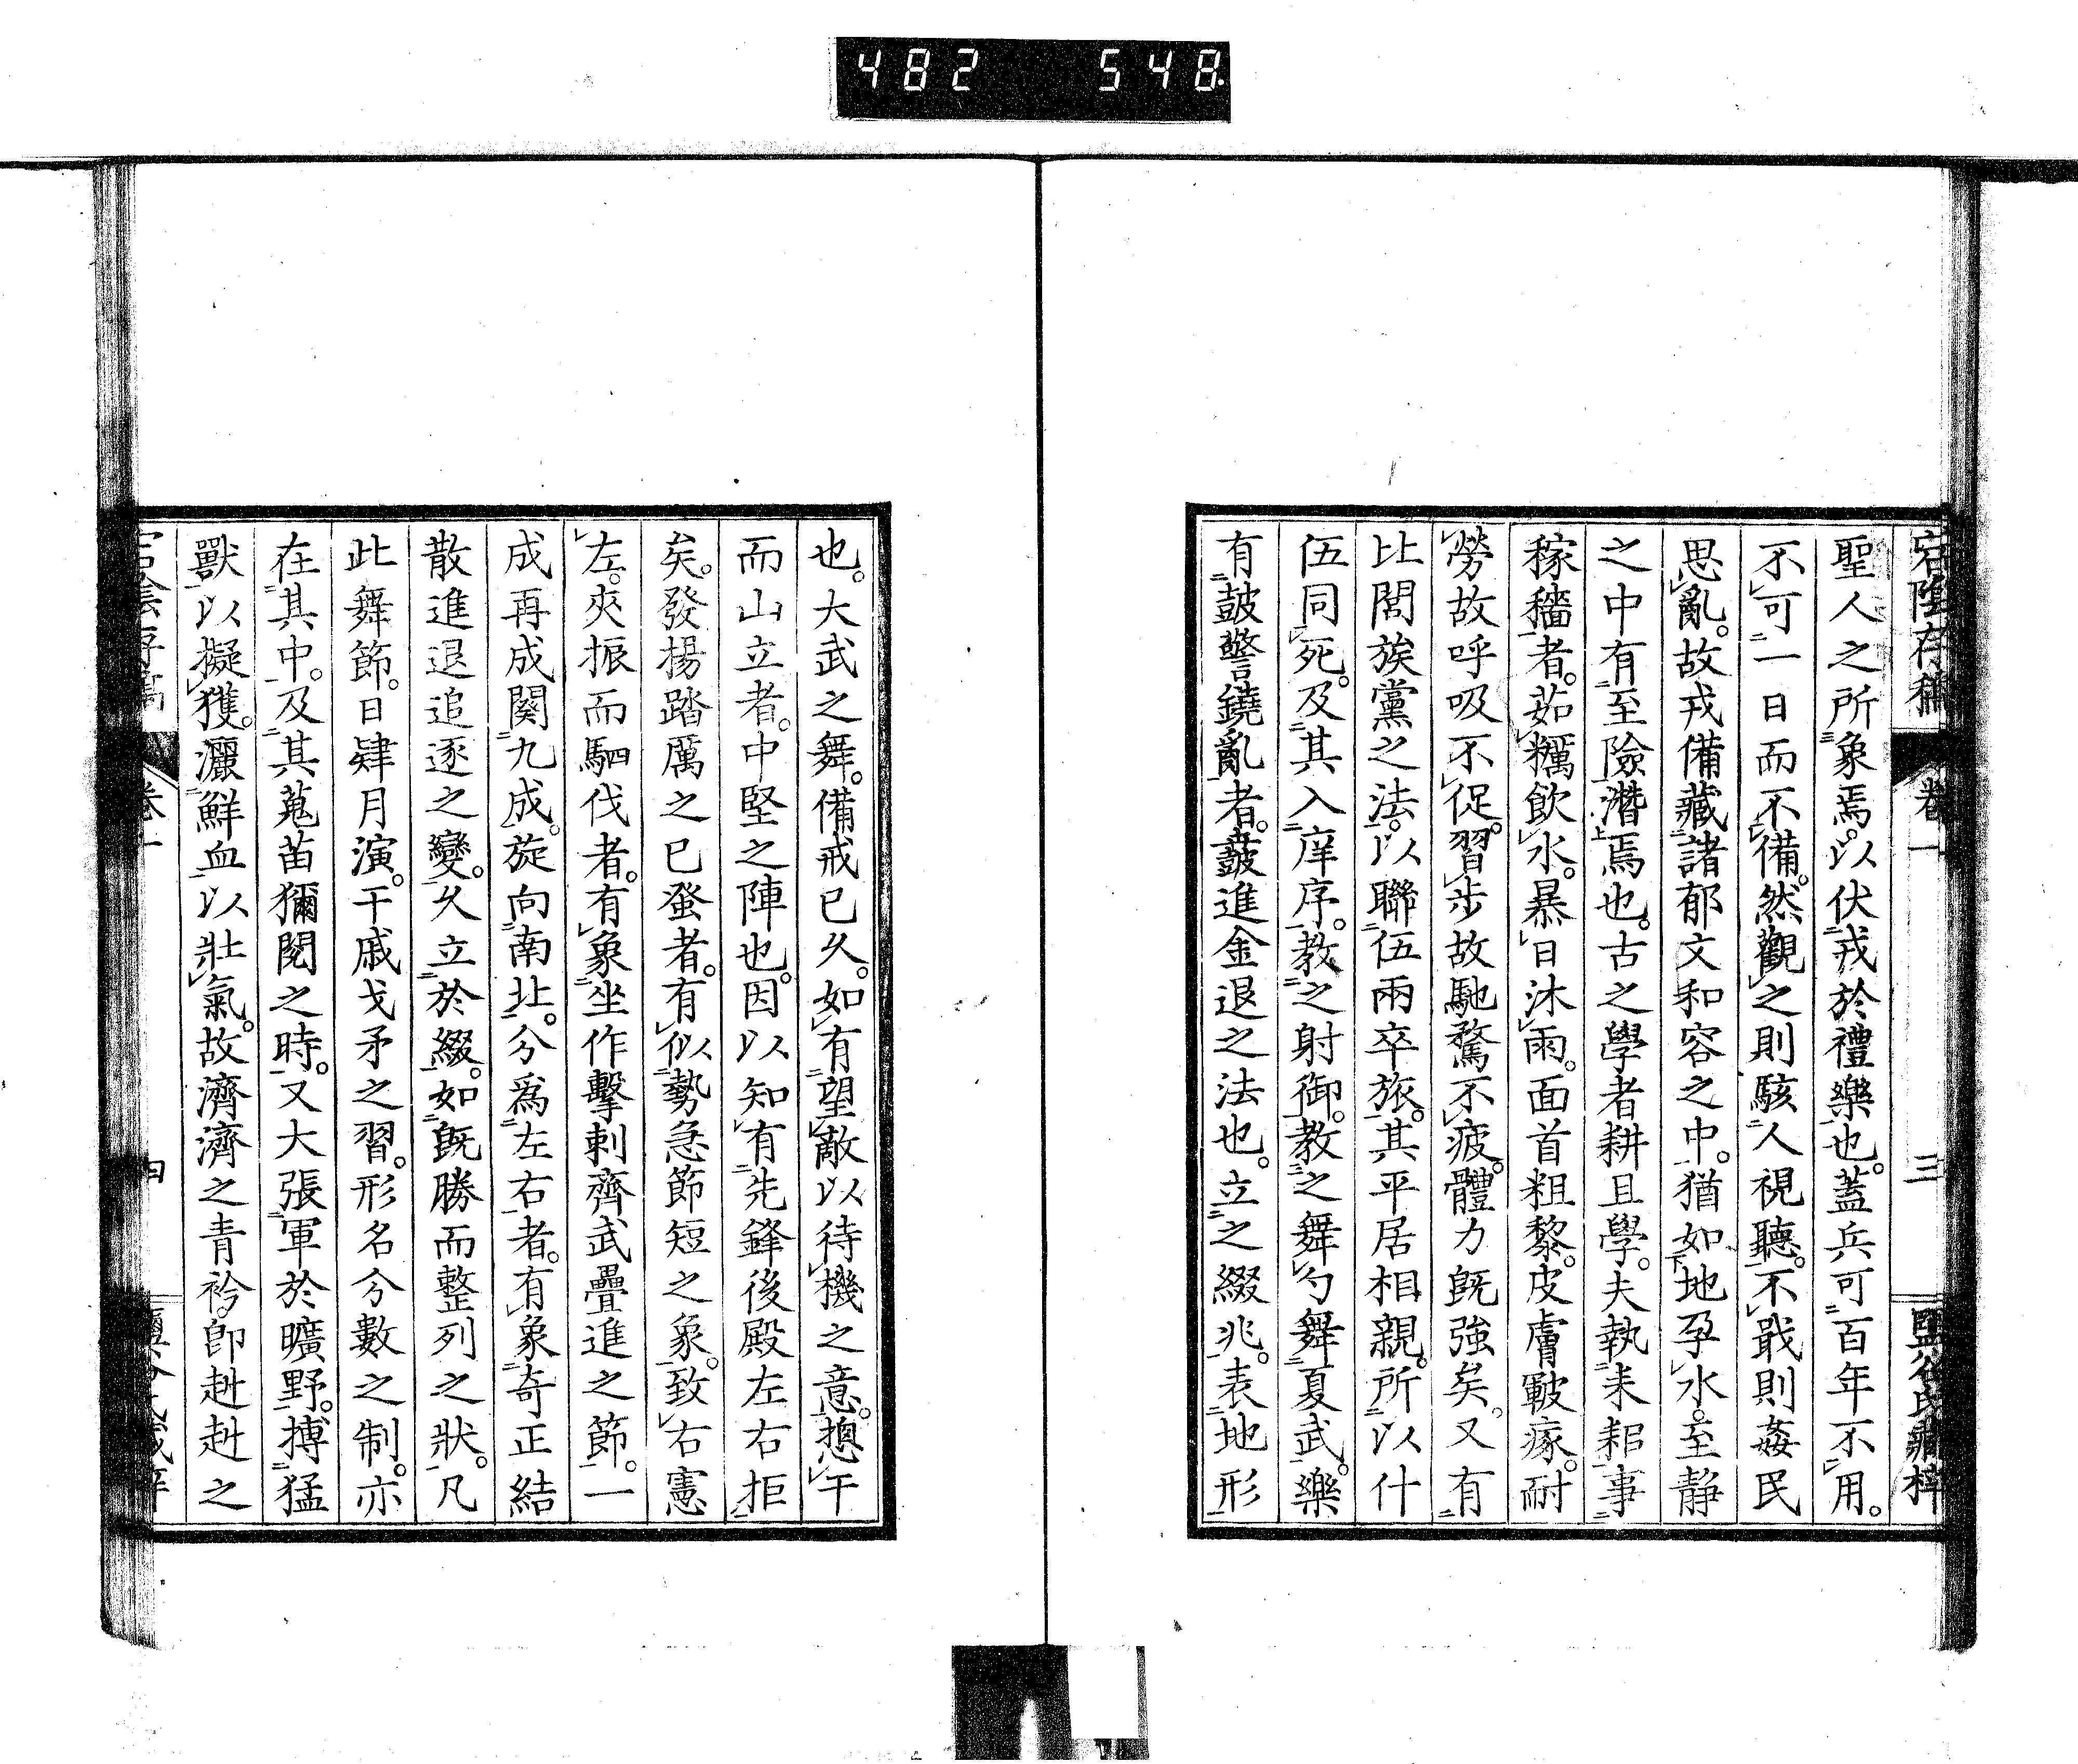 482 548.
宕陰存稿 卷一 三 鹽谷氏藏梓
聖人之所象焉。以伏戎於禮樂也。蓋兵可百年不用。
不可一日而不備。然觀之則駭人視聽。不戢則姦民
思亂。故戎備藏諸郁文和容之中。猶如地孕水。至靜
之中有至險潛焉也。古之學者耕且學。夫執耒耜事
稼穡者。茹糲飲水。暴日沐雨。面首粗黎。皮膚皸瘃。耐
勞故呼吸不促。習步故馳騖不疲。體力既強矣。又有
比閭族黨之法。以聯伍兩卒旅。其平居相親。所以什
伍同死。及其入庠序。教之射御。教之舞勺舞夏武。樂
有鼓警鐃亂者。鼓進金退之法也。立之綴兆。表地形
也。大武之舞。備戒已久。如有望敵以待機之意。揔干
而山立者。中堅之陣也。因以知有先鋒後殿左右拒
矣。發揚踏厲之已蚤者。有似勢急節短之象。致右憲
左。夾振而駟伐者。有象坐作擊刺齊武疊進之節。一
成再成闋九成。旋向南北。分爲左右者。有象奇正結
散進退追逐之變。久立於綴。如既勝而整列之狀。凡
此舞節。日肄月演。干戚戈矛之習。形名分數之制。亦
在其中。及其蒐苗獮閱之時。又大張軍於曠野。搏猛
獸以擬獲。灑鮮血以壯氣。故濟濟之青衿。卽赳赳之
卷一 四